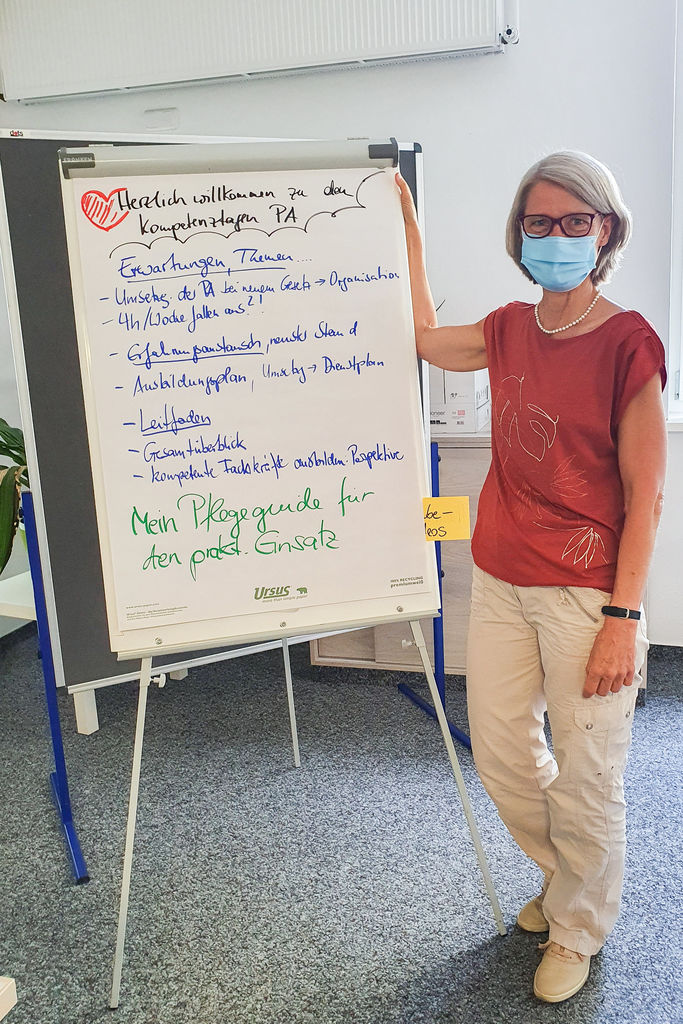 Herzlich willkommen zu den
Kompetenztagen PA
Erwartungen, Themen....
- Umsetzg. der PA bei neuem Gesetz → Organisation
- 4h/Woche fallen aus?!
- Erfahrungsaustausch, neuster Stand
- Ausbildungsplan, Umsetzg → Dienstplan
- Leitfaden
- Gesamtüberblick
- kompetente Fachkräfte ausbilden. Perspektive
Mein Pflegeguide für
den prakt. Einsatz
be-
eos
Ursus
more than simple paper
100% RECYCLING
premiumweiß